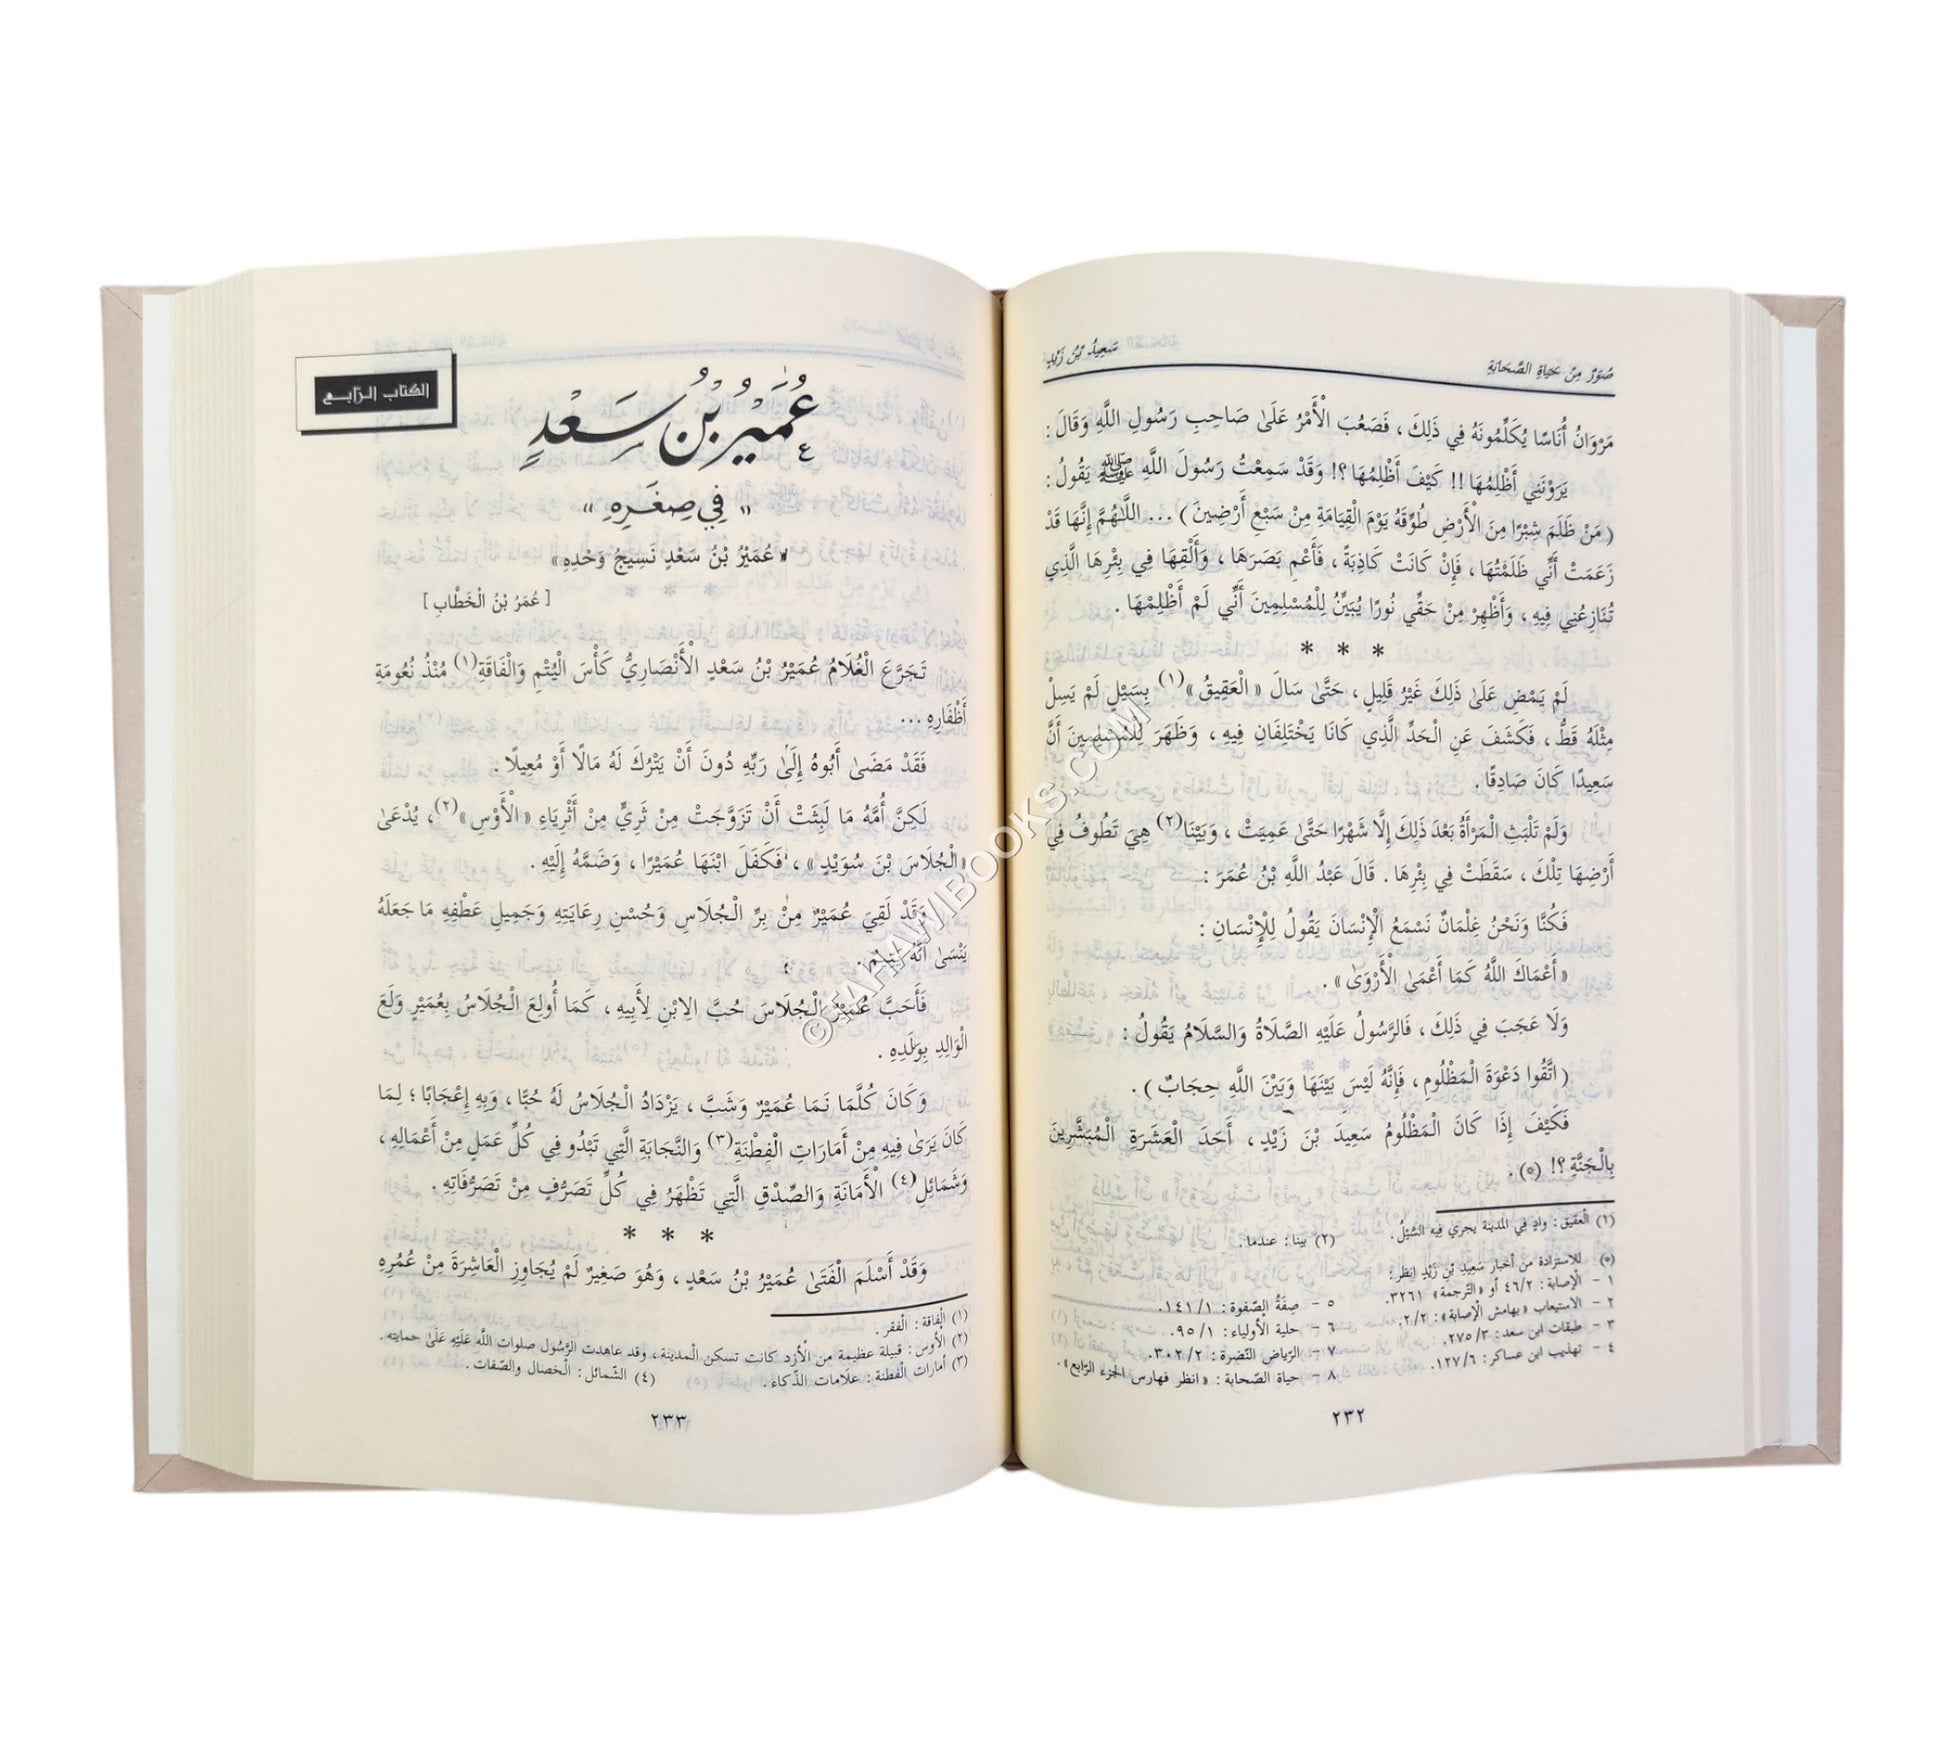 صُوَرٌ مِنْ حَيَاةِ الصَّحَابَةِ
سَعِيدُ بْنُ زَيْدٍ
مَرْوَانُ أُنَاسًا يُكَلِّمُونَهُ فِي ذَلِكَ ، فَصَعُبَ الْأَمْرُ عَلَىٰ صَاحِبِ رَسُولِ اللَّهِ وَقَالَ :
يَرَوْنَنِي أَظْلِمُهَا !! كَيْفَ أَظْلِمُهَا ؟! وَقَدْ سَمِعْتُ رَسُولَ اللَّهِ ﷺ يَقُولُ :
( مَنْ ظَلَمَ شِبْرًا مِنَ الْأَرْضِ طُوِّقَهُ يَوْمَ الْقِيَامَةِ مِنْ سَبْعِ أَرْضِينَ ) ... اللَّهُمَّ إِنَّهَا قَدْ
زَعَمَتْ أَنِّي ظَلَمْتُهَا ، فَإِنْ كَانَتْ كَاذِبَةً ، فَأَعْمِ بَصَرَهَا ، وَأَلْقِهَا فِي بِئْرِهَا الَّذِي
تُنَازِعُنِي فِيهِ ، وَأَظْهِرْ مِنْ حَقِّي نُورًا يُبَيِّنُ لِلْمُسْلِمِينَ أَنِّي لَمْ أَظْلِمْهَا .
* * *
لَمْ يَمْضِ عَلَىٰ ذَلِكَ غَيْرُ قَلِيلٍ ، حَتَّىٰ سَالَ « الْعَقِيقُ »(١) بِسَيْلٍ لَمْ يَسِلْ
مِثْلَهُ قَطُّ ، فَكَشَفَ عَنِ الْحَدِّ الَّذِي كَانَا يَخْتَلِفَانِ فِيهِ ، وَظَهَرَ لِلْمُسْلِمِينَ أَنَّ
سَعِيدًا كَانَ صَادِقًا .
وَلَمْ تَلْبَثِ الْمَرْأَةُ بَعْدَ ذَلِكَ إِلَّا شَهْرًا حَتَّىٰ عَمِيَتْ ، وَبَيْنَا(٢) هِيَ تَطُوفُ فِي
أَرْضِهَا تِلْكَ ، سَقَطَتْ فِي بِئْرِهَا . قَالَ عَبْدُ اللَّهِ بْنُ عُمَرَ :
فَكُنَّا وَنَحْنُ غِلْمَانٌ نَسْمَعُ الْإِنْسَانَ يَقُولُ لِلْإِنْسَانِ :
« أَعْمَاكَ اللَّهُ كَمَا أَعْمَىٰ الْأَرْوَىٰ » .
وَلَا عَجَبَ فِي ذَلِكَ ، فَالرَّسُولُ عَلَيْهِ الصَّلَاةُ وَالسَّلَامُ يَقُولُ :
( اتَّقُوا دَعْوَةَ الْمَظْلُومِ ، فَإِنَّهُ لَيْسَ بَيْنَهَا وَبَيْنَ اللَّهِ حِجَابٌ ) .
فَكَيْفَ إِذَا كَانَ الْمَظْلُومُ سَعِيدَ بْنَ زَيْدٍ ، أَحَدَ الْعَشَرَةِ الْمُبَشَّرِينَ
بِالْجَنَّةِ ؟! (*) .
(١) العقيق : وادٍ في المدينة يجري فيه السَّيْلُ . (٢) بينا : عندما .
(*) للاستزادة من أخبار سَعِيدِ بْنِ زَيْدٍ انظر :
١ - الإصابة : ٤٦/٢ أو « الترجمة » ٣٢٦١.
٢ - الاستيعاب « بهامش الإصابة » : ٢/٢.
٣ - طبقات ابن سعد : ٢٧٥/٣.
٤ - تهذيب ابن عساكر : ١٢٧/٦.
٥ - صِفَةُ الصَّفوة : ١٤١/١.
٦ - حلية الأولياء : ٩٥/١.
٧ - الرِّياض النَّضرة : ٣٠٢/٢.
٨ - حياة الصّحابة : « انظر فهارس الجزء الرّابع » .
٢٣٢
الكتاب الرّابع
عُمَيْرُ بْنُ سَعْدٍ
« فِي صِغَرِهِ »
« عُمَيْرُ بْنُ سَعْدٍ نَسِيجُ وَحْدِهِ »
[ عُمَرُ بْنُ الْخَطَّابِ ]
تَجَرَّعَ الْغُلَامُ عُمَيْرُ بْنُ سَعْدٍ الْأَنْصَارِيُّ كَأْسَ الْيُتْمِ وَالْفَاقَةِ(١) مُنْذُ نُعُومَةِ
أَظْفَارِهِ ...
فَقَدْ مَضَىٰ أَبُوهُ إِلَىٰ رَبِّهِ دُونَ أَنْ يَتْرُكَ لَهُ مَالًا أَوْ مُعِيلًا .
لَكِنَّ أُمَّهُ مَا لَبِثَتْ أَنْ تَزَوَّجَتْ مِنْ ثَرِيٍّ مِنْ أَثْرِيَاءِ « الْأَوْسِ »(٢)، يُدْعَىٰ
« الْجُلَاسَ بْنَ سُوَيْدٍ » ، فَكَفَلَ ابْنَهَا عُمَيْرًا ، وَضَمَّهُ إِلَيْهِ .
وَقَدْ لَقِيَ عُمَيْرٌ مِنْ بِرِّ الْجُلَاسِ وَحُسْنِ رِعَايَتِهِ وَجَمِيلِ عَطْفِهِ مَا جَعَلَهُ
يَنْسَىٰ أَنَّهُ يَتِيمٌ .
فَأَحَبَّ عُمَيْرٌ الْجُلَاسَ حُبَّ الِابْنِ لِأَبِيهِ ، كَمَا أُولِعَ الْجُلَاسُ بِعُمَيْرٍ وَلَعَ
الْوَالِدِ بِوَلَدِهِ .
وَكَانَ كُلَّمَا نَمَا عُمَيْرٌ وَشَبَّ ، يَزْدَادُ الْجُلَاسُ لَهُ حُبًّا ، وَبِهِ إِعْجَابًا ؛ لِمَا
كَانَ يَرَىٰ فِيهِ مِنْ أَمَارَاتِ الْفِطْنَةِ(٣) وَالنَّجَابَةِ الَّتِي تَبْدُو فِي كُلِّ عَمَلٍ مِنْ أَعْمَالِهِ ،
وَشَمَائِلِ(٤) الْأَمَانَةِ وَالصِّدْقِ الَّتِي تَظْهَرُ فِي كُلِّ تَصَرُّفٍ مِنْ تَصَرُّفَاتِهِ .
* * *
وَقَدْ أَسْلَمَ الْفَتَىٰ عُمَيْرُ بْنُ سَعْدٍ ، وَهُوَ صَغِيرٌ لَمْ يُجَاوِزِ الْعَاشِرَةَ مِنْ عُمُرِهِ
(١) الْفَاقة : الْفقر .
(٢) الأوس : قبيلة عظيمة من الأزد كانت تسكن المدينة ، وقد عاهدت الرَّسول صلوات اللَّه عَلَيْهِ عَلَىٰ حمايته .
(٣) أمارات الْفطنة : علَامات الذّكاء . (٤) الشّمائل : الْخصال والصّفات .
٢٣٣
© TAHAWIBOOKS.COM